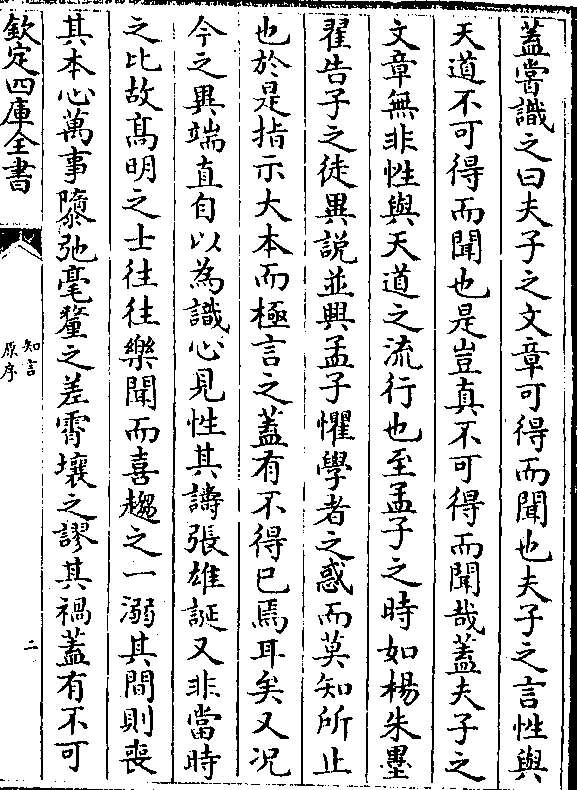 蓋嘗識之曰夫子之文章可得而聞也夫子之言性與
天道不可得而聞也是豈真不可得而聞哉蓋夫子之
文章無非性與天道之流行也至孟子之時如楊朱墨
翟告子之徒異説並興孟子懼學者之惑而莫知所止
也於是指示大本而極言之蓋有不得已焉耳矣又况
今之異端直自以為識心見性其譸張雄誕又非當時
之比故髙明之士往往樂聞而喜趨之一溺其間則喪
其本心萬事隳弛毫釐之差霄壤之謬其禍蓋有不可
欽定四庫全書
知言
原序
二